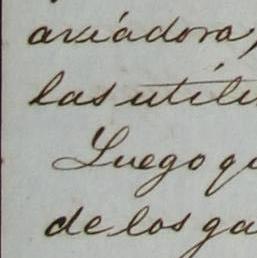 aviádora,
las utili
Luego qu
de los ga